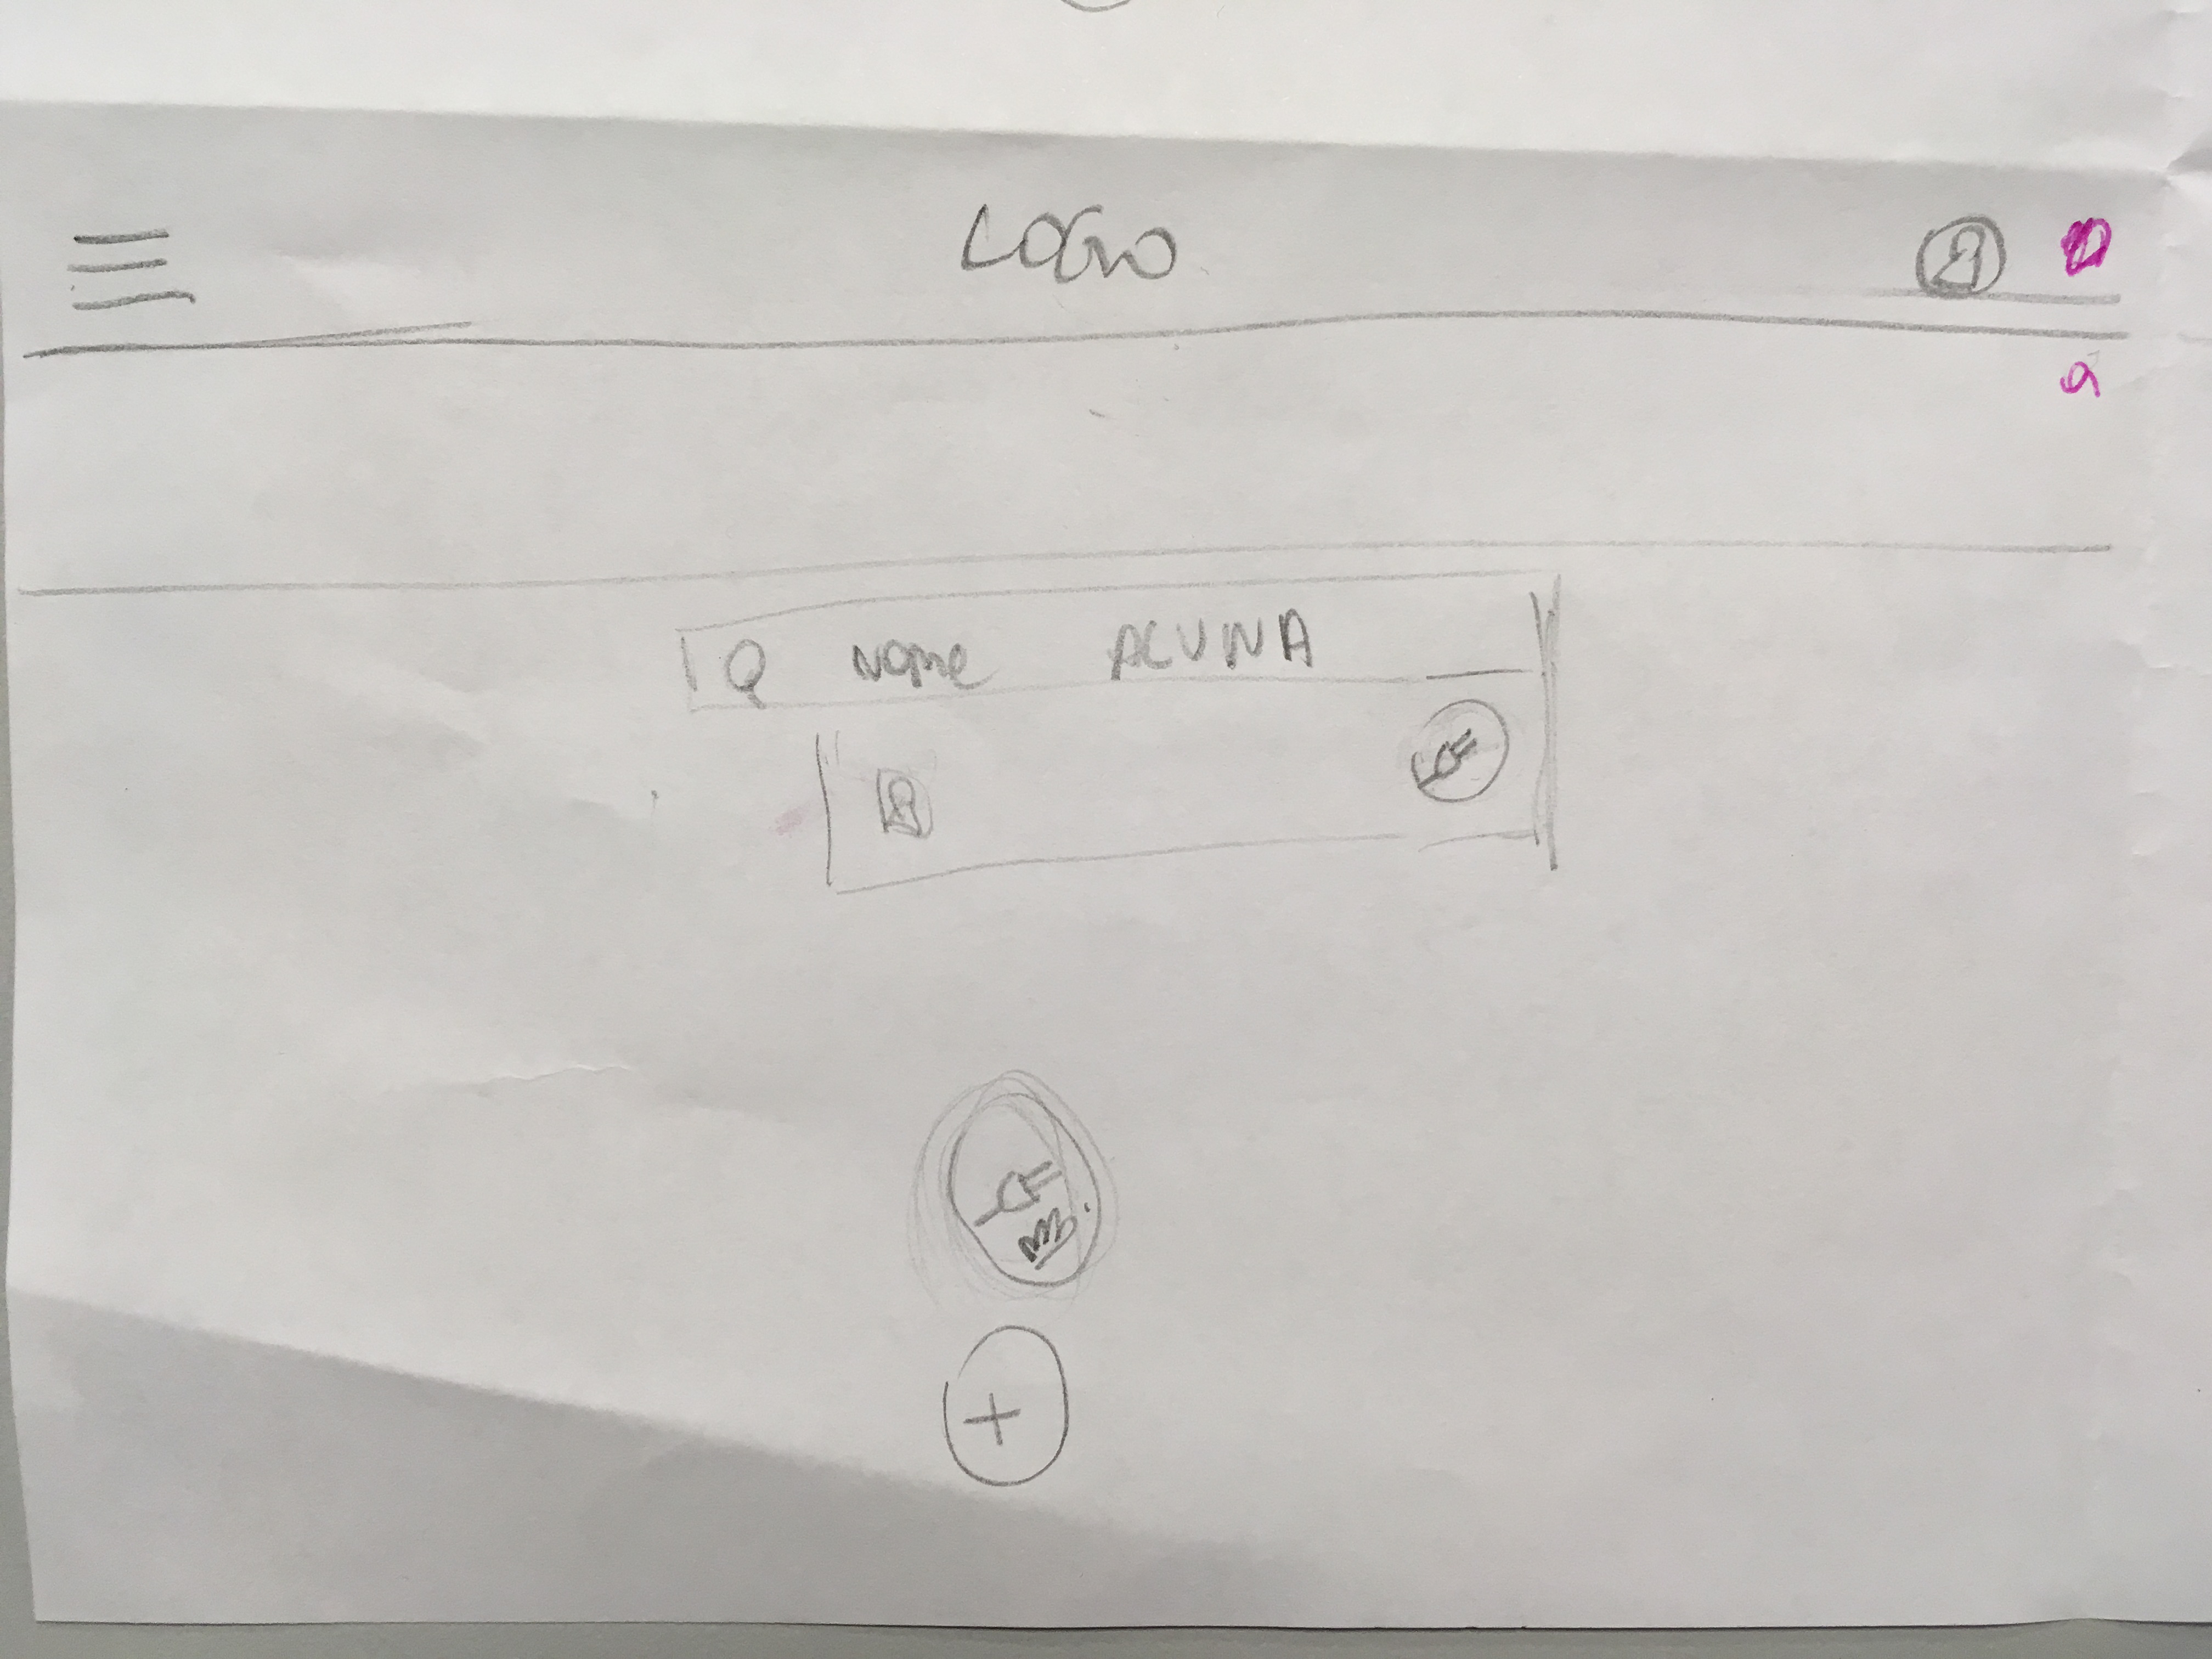 LOGO
Nome ALUNA
+